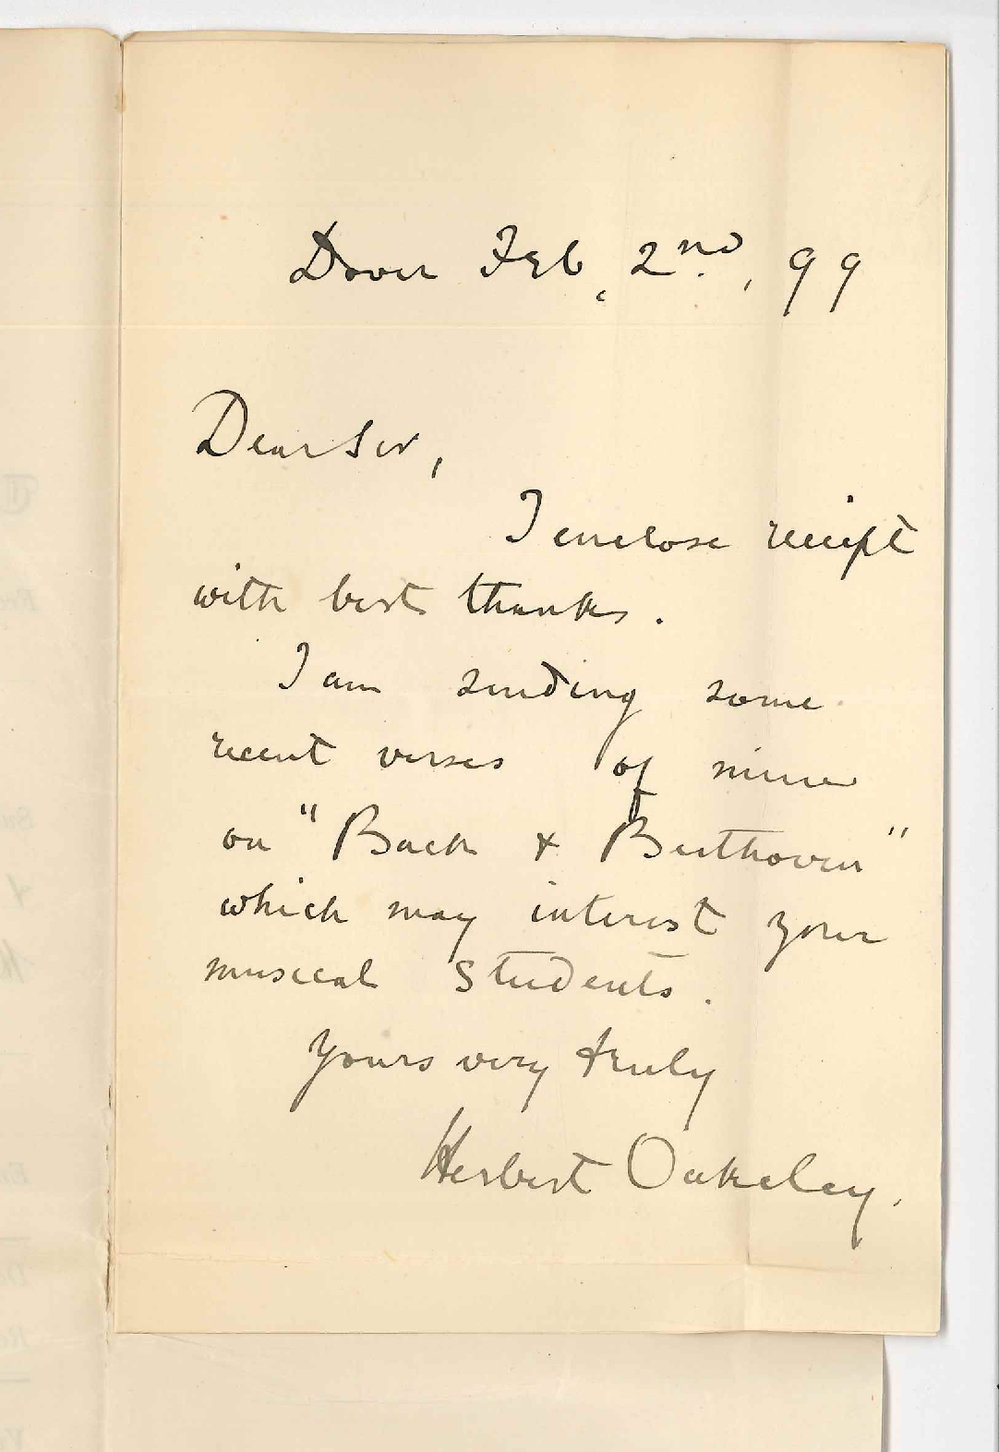 Dover Feb, 2nd., 99
Dear Sir,
I enclose receipt
with best thanks.
I am sending some
recent verses of mine
on "Bach & Beethoven"
which may interest your
musical students.
Yours very truly
Herbert Oakeley.